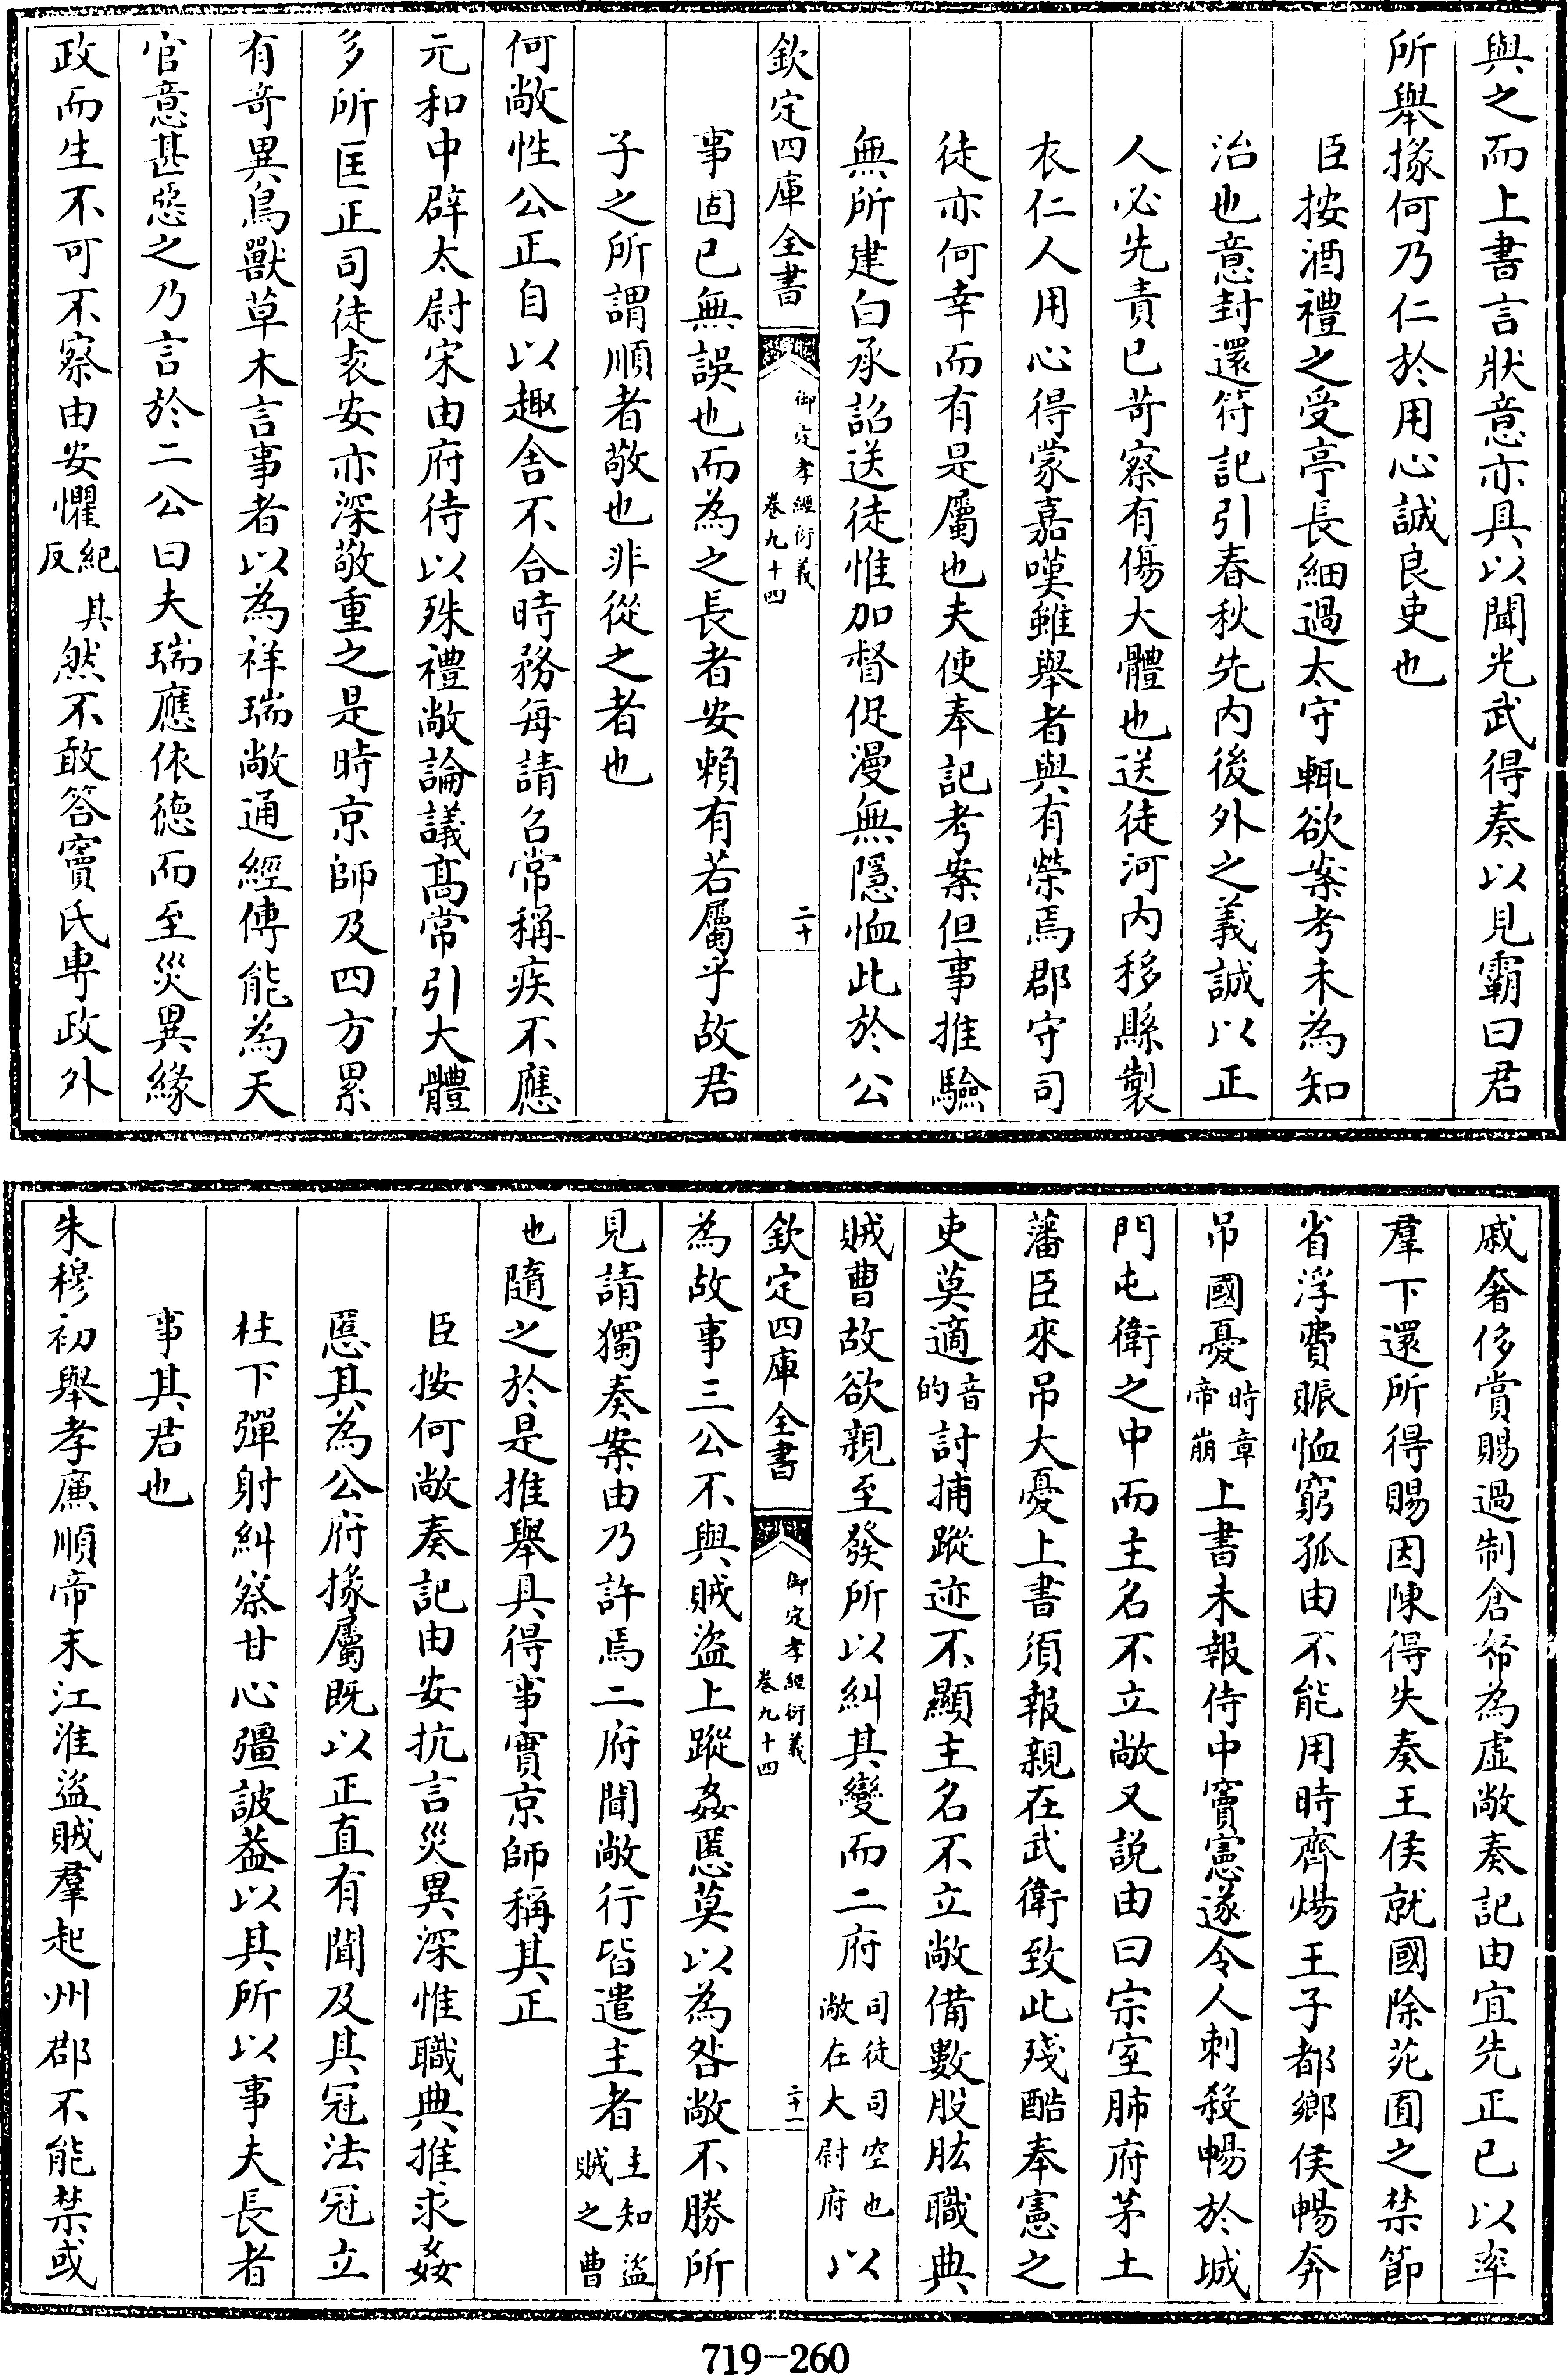 與之而上書言狀意亦具以聞光武得奏以見霸曰君
所舉掾何乃仁於用心誠良吏也
臣按酒禮之受亭長細過太守輒欲案考未為知
治也意封還符記引春秋先內後外之義誠以正
人必先責已苛察有傷大體也送徒河內移縣製
衣仁人用心得蒙嘉嘆雖舉者與有榮焉郡守司
徒亦何幸而有是屬也夫使奉記考案但事推驗
無所建白承詔送徒惟加督促漫無隱恤此於公
欽定四庫全書
御定孝經衍義
卷九十四
二十
事固已無誤也而為之長者安賴有若屬乎故君
子之所謂順者敬也非從之者也
何敞性公正自以趣舍不合時務每請召常稱疾不應
元和中辟太尉宋由府待以殊禮敞論議髙常引大體
多所匡正司徒袁安亦深敬重之是時京師及四方累
有奇異鳥獸草木言事者以為祥瑞敞通經傳能為天
官意甚惡之乃言於二公曰夫瑞應依德而至災異緣
政而生不可不察由安懼紀具反然不敢答竇氏専政外
戚奢侈賞賜過制倉帑為虛敞奏記由宜先正已以率
羣下還所得賜因陳得失奏王侯就國除苑囿之禁節
省浮費賑恤窮孤由不能用時齊煬王子都鄉侯暢奔
吊國憂時章帝崩上書未報侍中竇憲遂令人刺殺暢於城
門屯衛之中而主名不立敞又說由曰宗室肺府茅土
藩臣來吊大憂上書須報親在武衛致此殘酷奉憲之
吏莫適音的討捕蹤迹不顯主名不立敞備數股肱職典
賊曹故欲親至發所以糾其變而二府司徒司空也敞在大尉府以
欽定四庫全書
御定孝經衍義
卷九十四
二十一
為故事三公不與賊盜上蹤姦慝莫以為咎敞不勝所
見請獨奏案由乃許焉二府聞敞行皆遣主者主知盜賊之曹
也隨之於是推舉具得事實京師稱其正
臣按何敞奏記由安抗言災異深惟職典推求姦
慝其為公府掾屬既以正直有聞及其冠法冠立
柱下彈射糾察甘心彊詖葢以其所以事夫長者
事其君也
朱穆初舉孝廉順帝末江淮盜賊羣起州郡不能禁或
719-260